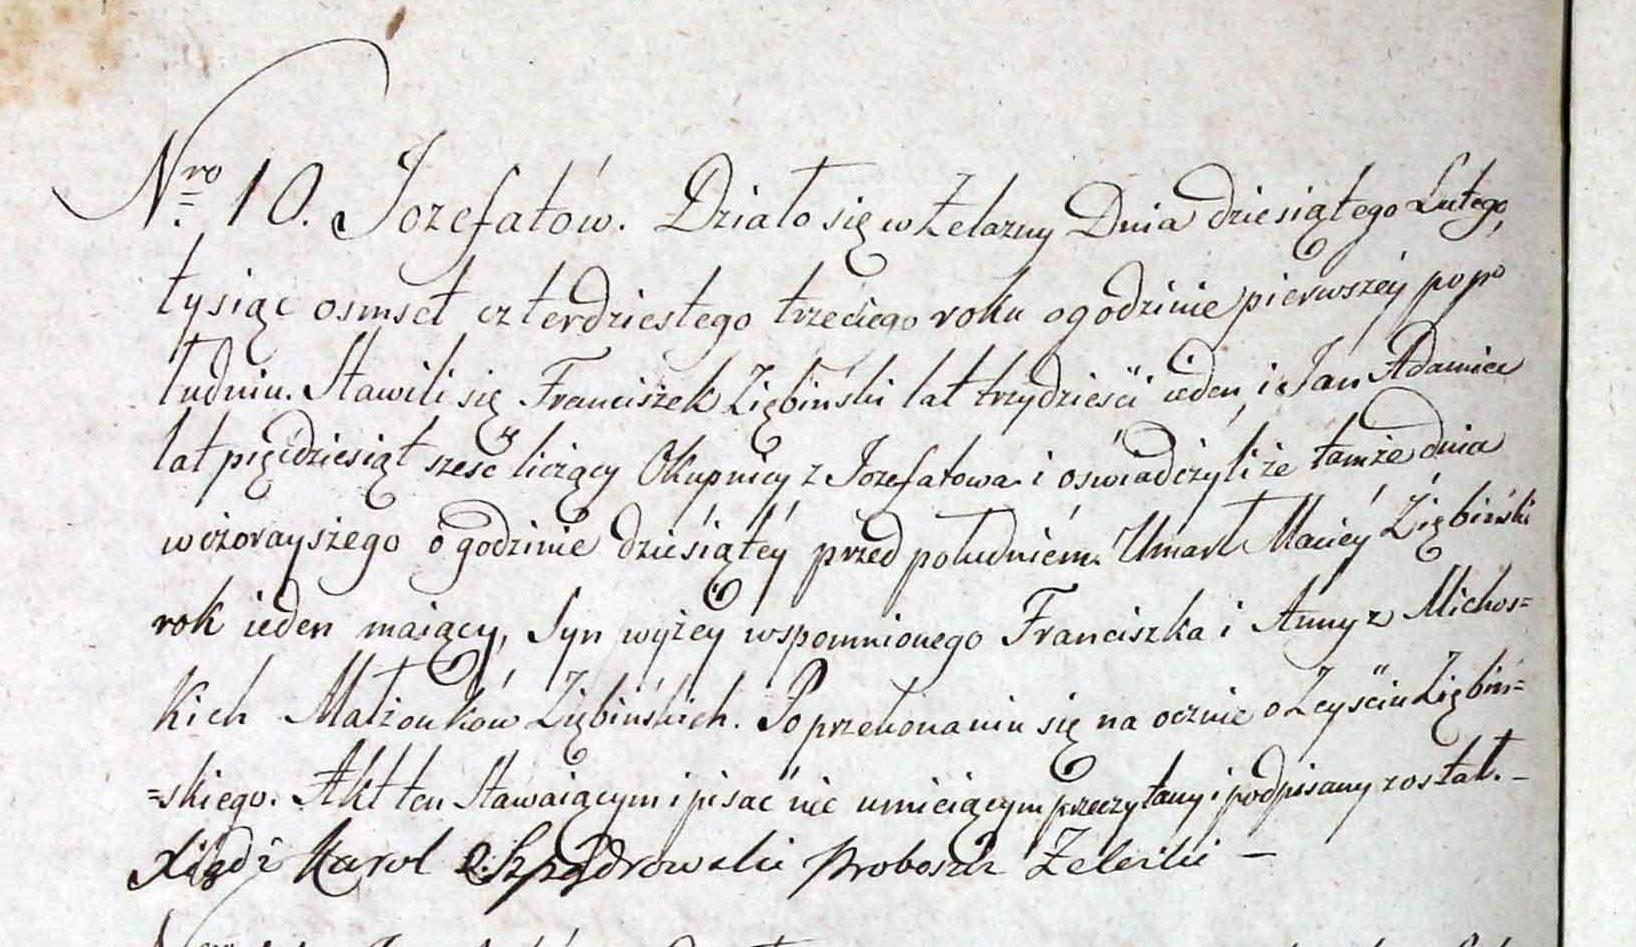 Nro 10. Jozefatów. Działo się w Żelazny Dnia dziesiątego Lutego,
tysiąc osmset czterdziestego trzeciego roku o godzinie pierwszéy po po
łudniu. Stawili się Franciszek Ziębiński lat trzydzieści ieden, i Jan Adamiec
lat pięćdziesiąt sześć liczący Okupnicy z Jozefatowa i oświadczyli że tamże dnia
wczorayszego o godzinie dziesiątéy przed południem. Umarł Maciéy Ziębiński
rok ieden maiący, Syn wyżéy wspomnionego Franciszka i Anny z Michos=
kich Małżonków Ziębińskich. Po przekonaniu się na ocznie o Zeyściu Ziębiń=
=skiego. Akt ten Stawaiącym i pisać nie umieiącym przeczytany i podpisany został. –
Xiądz Karol Proboszcz –